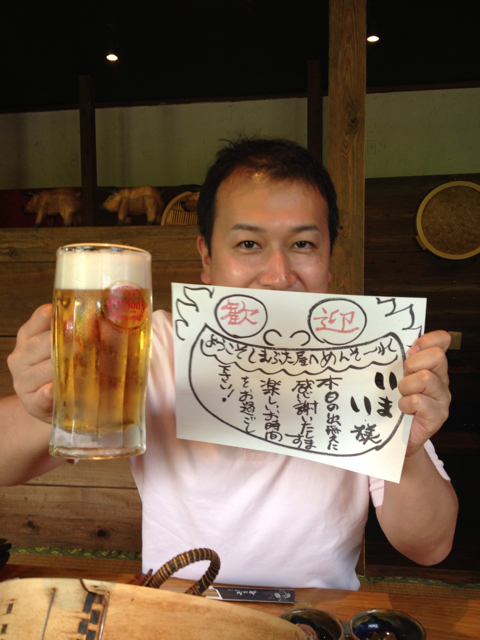 歓迎
ようこそしまぶた屋へめんそーれ
いまい様
本日の出逢えに
感謝いたします
楽しいお時間
をお過ごし
下さい!